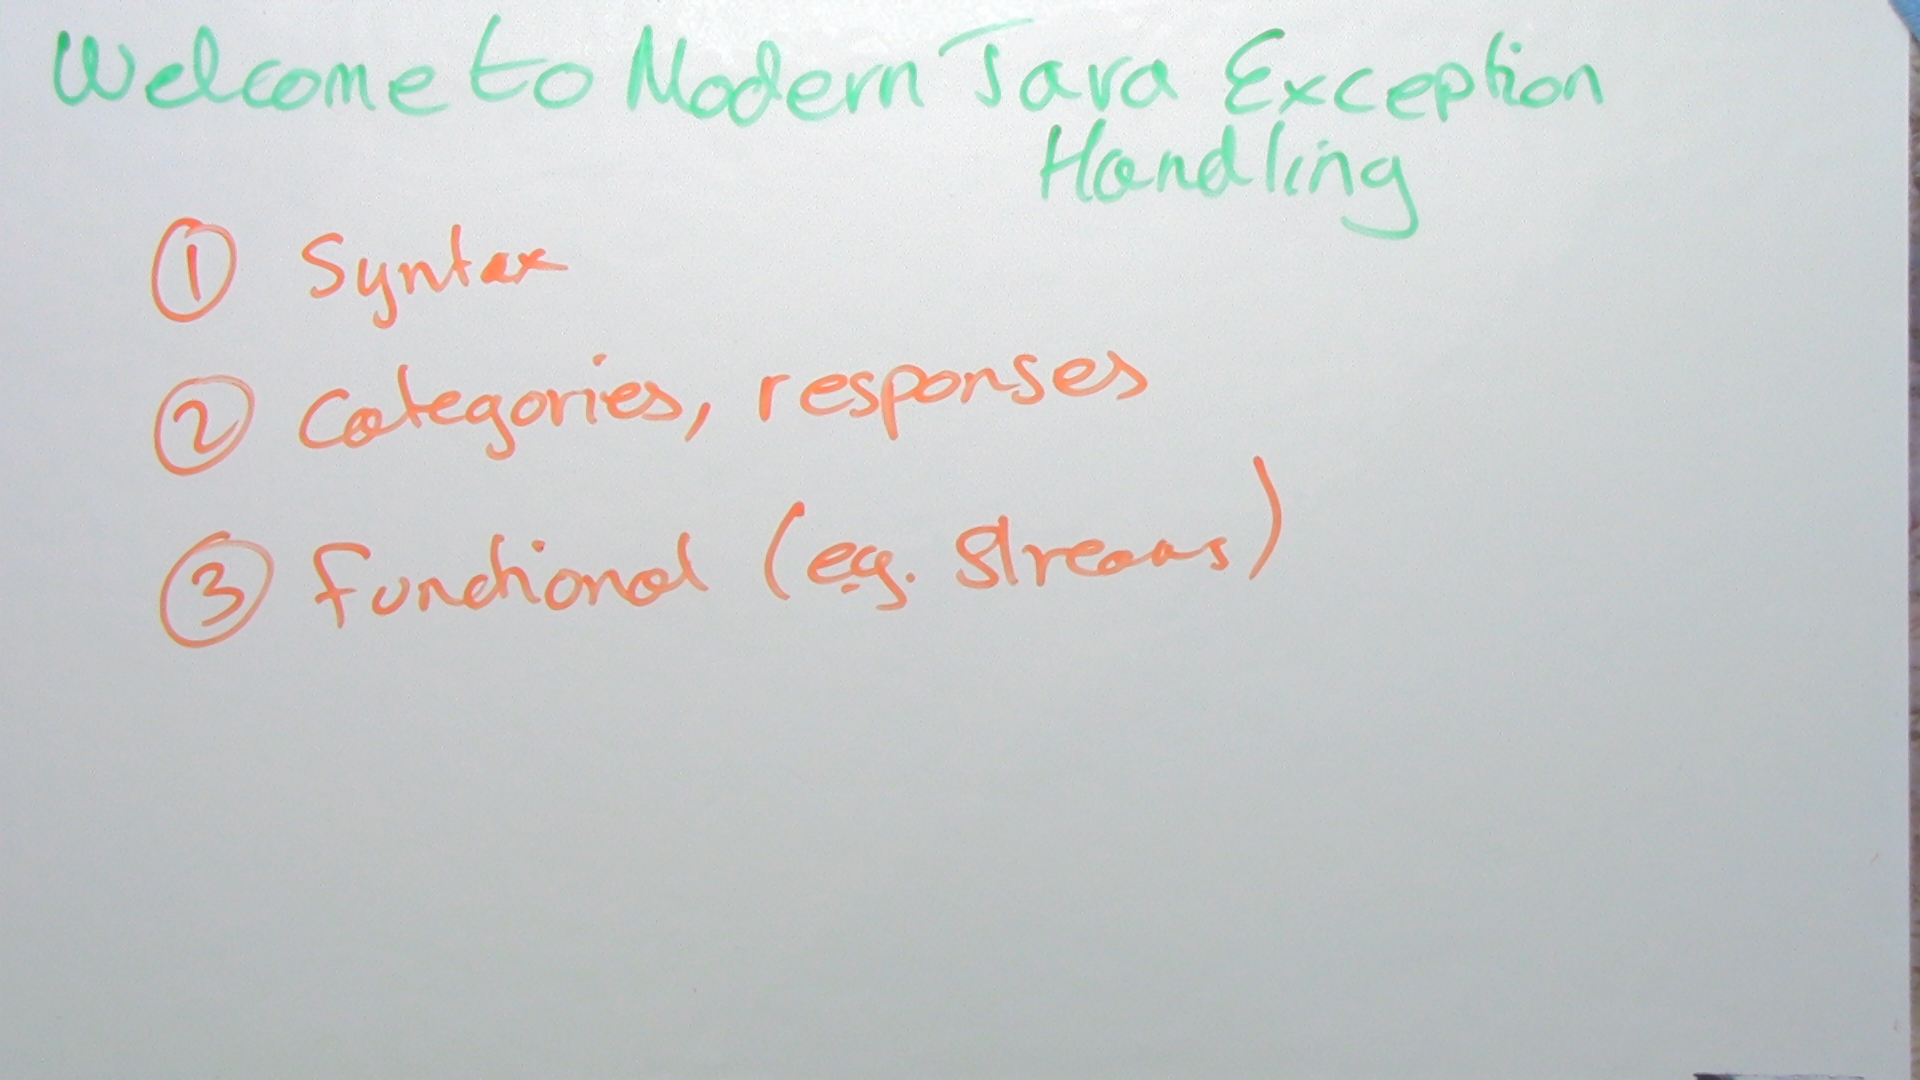 Welcome to Modern Java Exception
Handling
① Syntax
② Categories, responses
③ Functional (eg. Streams)